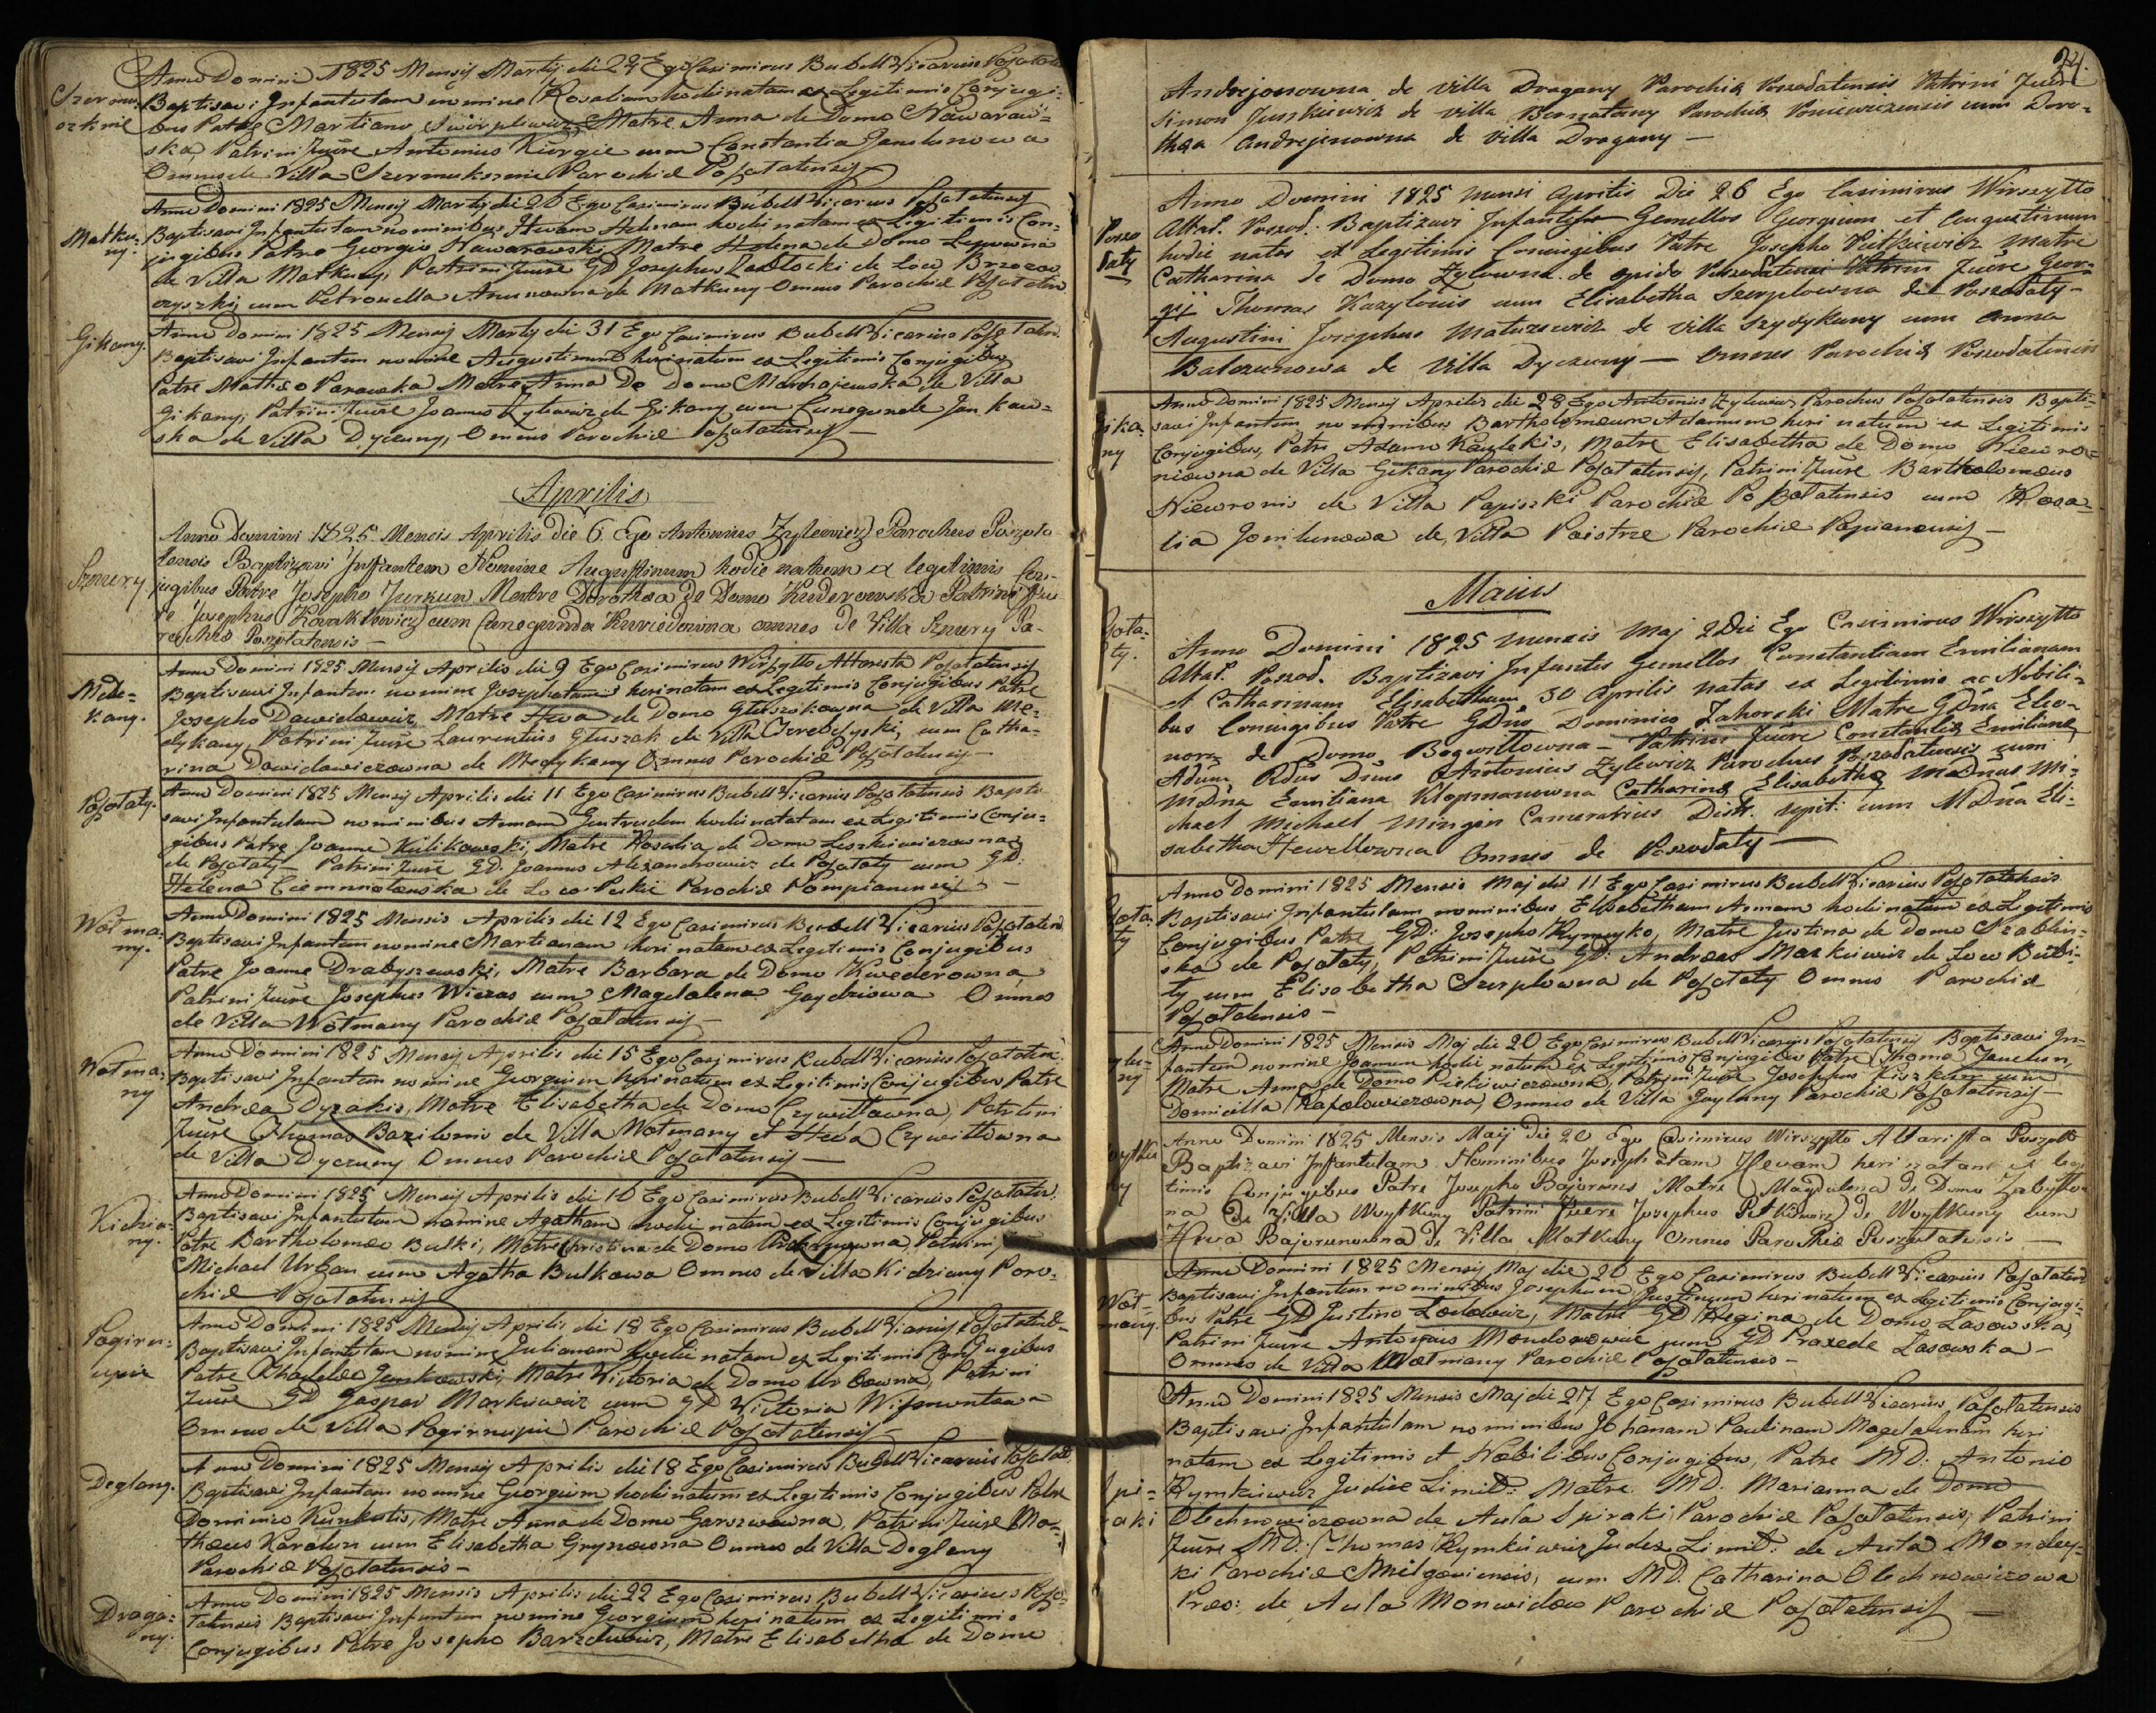 Szermu-
oz knie
Anno Domini 1825 Mensij Martij die 24 Ego Casimirus Bubell Vicarius
Baptisavi Infantulam nomine Rosaliam hodie natam ex Legitimis Conjugi-
bus Patre Martiano Swirplewicz Matre Anna de Domo Nawaraw-
ska, Patrini fuêre Antonius Kurgie cum Constantia Janelunowa
Omnes de Villa Szermuksznie Parochiæ Poszolatensis
Matku-
ny.
Anno Domini 1825 Mensij Martij die 26 Ego Casimirus Bubell Vicarius Poszolatensis
Baptisavi Infantulam nominibus Hevam Helenam hodie natam ex Legitimis Con-
jugibus Patre Georgio Nawarawski, Matre Helena de Domo
de Villa Matkuny, Patrini fuêre GD Josephus Zabłocki de Loco Brzozow
czyszki cum Petronella Anunowna de Matkuny Omnes Parochiæ
Gikany.
Anno Domini 1825 Mensij Martij die 31 Ego Casimirus Bubell Vicarius
Baptisavi Infantem nomine Augustinum heri natum ex Legitimis Conjugibus
Patre Mathæo Parawka Matre Anna De Domo Machajewska de Villa
Gikany, Patrini fuêre Joannes Zylewicz de Gikany cum Cunegunde Jankaw-
ska de Villa Dyczuny, Omnes Parochiæ Poszolatensis —
Aprilis
Szmury
Anno Domini 1825 Mensis Aprilis Die 6 Ego Antonius Zylewicz Parochus Poszola
tensis Baptizavi Infantem Nomine Augustinum hodie natum ex legitimis Con-
jugibus Patre Josepho Jurkun Matre Dorothea De Domo Kuderowska Patrini fue-
re Josephus Kowalkiewicz cum Cunegunda Kuwiedowna omnes De Villa Szmury Pa-
rochiæ Poszolatensis —
Mede-
kany.
Anno Domini 1825 Mensij Aprilis die 9 Ego Casimirus Wirszytto Altarista Poszolatensis
Baptisavi Infantem nomine Josephatam heri natam ex Legitimis Conjugibus Patre
Josepho Dawidowicz, Matre Heva de Domo Gluszakowna de Villa Me-
dykany, Patrini fuêre Laurentius Gluszak de Villa cum Catha-
rina Dawidowiczowna de Medykany Omnes Parochiæ Poszolatensis —
Poszolaty.
Anno Domini 1825 Mensij Aprilis die 11 Ego Casimirus Bubell Vicarius Poszolatensis Bapti
savi Infantulam nominibus Annam Gertrudem hodie natam ex Legitimis Conju-
gibus Patre Joanne Kulikowski, Matre Rosalia de Domo Leszkiewiczowna
de Poszolaty — Patrini fuêre GD. Joannes Alexandrowicz de Poszolaty cum GD:
Helena Ciemnołońska de Loco Pukie Parochiæ Pompianensis —
Wotma-
ny.
Anno Domini 1825 Mensis Aprilis die 12 Ego Casimirus Bubell Vicarius
Baptisavi Infantem nomine Martianam heri natam ex Legitimis Conjugibus
Patre Joanne Drabyszewski, Matre Barbara de Domo Kwederowna
Patrini fuêre Josephus Wiezas cum Magdalena Gaydziowa Omnes
de Villa Wotmany Parochiæ Poszolatensis —
Wotma-
ny
Anno Domini 1825 Mensij Aprilis die 15 Ego Casimirus Bubell Vicarius
Baptisavi Infantem nomine Georgium heri natum ex Legitimis Conjugibus Patre
Andrea Dyrakis, Matre Elisabetha de Domo Czywiłłowna, Patrini
fuêre Thomas Bazilonis de Villa Wotmany et Heva Czywiłłowna
de Villa Dyczuny Omnes Parochiæ Poszolatensis —
Kidzia-
ny.
Anno Domini 1825 Mensij Aprilis die 16 Ego Casimirus Bubell Vicarius
Baptisavi Infantulam nomine Agatham hodie natam ex Legitimis Conjugibus
Patre Bartholomæo Bulki, Matre Christina de Domo Patrini
Michael Urban cum Agatha Bulkowa Omnes de Villa Kidziany Paro-
chiæ Poszolatensis
Pogiru-
upie
Anno Domini 1825 Mensij Aprilis die 18 Ego Casimirus Bubell Vicarius
Baptisavi Infantulam nomine Julianam hodie natam ex Legitimis Conjugibus
Patre Thaddeo Jankowski, Matre Victoria de Domo Urbowna, Patrini
fuêre GD Gaspar Markiewicz cum GD Victoria
Omnes de Villa Pogirrupie Parochiæ Poszolatensis —
Deglany.
Anno Domini 1825 Mensij Aprilis die 18 Ego Casimirus Bubell Vicarius
Baptisavi Infantem nomine Georgium hodie natum ex Legitimis Conjugibus Patre
Dominico Kunkulis, Matre Anna de Domo Garszwowna, Patrini fuêre Ma-
thæus Karalun cum Elisabetha Grynowna Omnes de Villa Deglany
Parochiæ Poszolatensis —
Draga-
ny.
Anno Domini 1825 Mensis Aprilis die 22 Ego Casimirus Bubell Vicarius Poszo-
latensis Baptisavi Infantem nomine Georgium heri natum ex Legitimis
Conjugibus Patre Josepho Barzdiewicz, Matre Elisabetha de Domo
24.
Andrejonowna de villa Dragany Parochiæ Poszodatensis Patrini fuêre
Simon Juszkiewicz de villa Bernatany Parochiæ Poniewezensis cum Doro-
thea Andrejonowna de villa Dragany —
Poszo
łaty
Anno Domini 1825 Mensi Aprilis Die 26 Ego Casimirus Wirszytto
Altar. Poszod. Baptizavi Infantes Gemellos Georgium et Augustinum
hodie natos ex Legitimis Conjugibus Patre Josepho Pietkiewicz Matre
Catharina de Domo Zylowna de opido Poszodatensi Patrini fuêre Geor-
gij Thomas Kazylonis cum Elisabetha Szerplowna de Poszodaty —
Augustini Josephus Matuzewicz de villa Szydykuny cum Anna
Balczunowa de Villa Dyczuny — Omnes Parochiæ Poszodatensis
Gika-
ny
Anno Domini 1825 Mensij Aprilis die 28 Ego Antonius Zylewicz Parochus Poszolatensis Bapti-
savi Infantem nominibus Bartholomeum Adamum heri natum ex Legitimis
Conjugibus, Patre Adamo Kaulekis, Matre Elisabetha de Domo Niewro-
niowna de Villa Gikany Parochiæ Poszolatensis, Patrini fuêre Bartholomæus
Niewronis de Villa Papiszki Parochiæ Poszolatensis cum Rosa-
lia Jonikunowa de Villa Paistrze Parochiæ
Maius
Poszola-
ty.
Anno Domini 1825 Mensis Maj 2 Die Ego Casimirus Wirszytto
Altar. Poszod. Baptizavi Infantes Gemellos Constantiam Emilianam
et Catharinam Elisabetham 30 Aprilis natas ex Legitimis ac Nobili-
bus Conjugibus Patre GDno Dominico Zahorski Matre GDna Eleo-
nora de Domo Bogwiłłowna — Patrini fuêre Constantiæ Emilianæ
Adum Rdus Dnus Antonius Zylewicz Parochus Poszodatensis cum
MDna Emiliana Klopmanowna Catharinæ Elisabethæ MDnus Mi-
chael Michael Mingen Camerarius Distr. Upit: cum MDna Eli-
sabetha Hewellowna Omnes de Poszodaty —
Poszola-
ty
Anno Domini 1825 Mensis Maj die 11 Ego Casimirus Bubell Vicarius Poszolatensis
Baptisavi Infantulam nominibus Elisabetham Annam hodie natam ex Legitimis
Conjugibus Patre GD: Josepho Rymeyko, Matre Justina de Domo Szablin-
ska de Poszolaty, Patrini fuêre GD: Andreas Markiewicz de Loco Bubi-
ty cum Elisabetha Szerplowna de Poszolaty Omnes Parochiæ
Poszolatensis —
Anno Domini 1825 Mensis Maj die 20 Ego Casimirus Bubell Vicarius Poszolatensis Baptisavi In-
fantem nomine Joannem hodie natum ex Legitimis Conjugibus Patre Thoma Janelun,
Matre Anna de Domo Pietkiewiczowna, Patrini fuêre Josephus cum
Domicella Rafałowiczowna, Omnes de Villa Jayluny Parochiæ Poszolatensis —
Anno Domini 1825 Mensis Maij Die 20 Ego Casimirus Wirszytto Altarista
Baptizavi Infantulam Nominibus Josephatam Hevam heri natam ex legi
timis Conjugibus Patre Josepho Bajorunes Matre Magdalena De Domo
na De Villa Woytkuny Patrini fuere Josephus Pietkiewicz De Woytkuny cum
Heva Bajorunowna De Villa Matkuny Omnes Parochiæ Poszolatensis —
Wot-
many.
Anno Domini 1825 Mensij Maj die 26 Ego Casimirus Bubell Vicarius
Baptisavi Infantem nominibus Josephum Justinum heri natum ex Legitimis Conjugi-
bus Patre GD Justino Lodowicz, Matre GD Regina de Domo Lasowska,
Patrini fuêre Antonius cum GD Praxede Lasowska —
Omnes de Villa Wotmany Parochiæ Poszolatensis —
Spi-
raki
Anno Domini 1825 Mensis Maj die 27 Ego Casimirus Bubell Vicarius Poszolatensis
Baptisavi Infantulam nominibus Johanam Paulinam Magdalenam heri
natam ex Legitimis et Nobilibus Conjugibus, Patre MD: Antonio
Rymkiewicz Judice Limit: Matre MD. Marianna de Domo
Olechnowiczowna de Aula Spiraki Parochiæ Poszolatensis, Patrini
fuêre MD: Thomas Rymkiewicz Judex Limit: de Aula
ki Parochiæ Smilgoviensis, cum MD. Catharina Olechnowiczowa
Præs: de Aula Monwidow Parochiæ Poszolatensis —